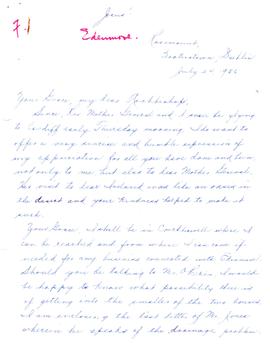 Jesus!
F.1
Edenmore.
Rosemount,
Booterstown, Dublin
July 24 1956
Your Grace, my dear Archbishop,
Since, Rev Mother General and I may be flying
to Cardiff early Thursday morning. I do want to
offer a very sincere and humble expression of
my appreciation for all you have done and are,
not only to me but also to dear Mother General.
Her visit to dear Ireland was like an oasis in
the desert and your kindness helped to make it
such.
Your Grace, I shall be in where I
can be reached and from where I can come if
needed for any business connected with Edenmore.
Should you be talking to Mr. O' I would
be happy to know what possibility there is
of getting into the smaller of the two houses.
I am enclosing the last letter of Mr. Jones
wherein he speaks of the drainage problem